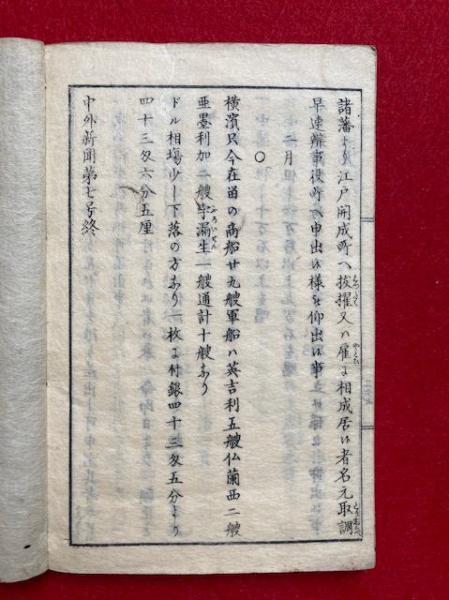 諸藩より江戸開成所へ抜擢又ハ雇ニ相成居候者名元取調
早速辨事役所へ申出候様被仰出候事
二月
〇
横濱只今在留の商船廿九艘軍船ハ英吉利五艘仏蘭西二艘
亜墨利加二艘孛漏生一艘通計十艘なり
ドル相塲少し下落の方なり一枚ニ付銀四十三匁五分より
四十三匁六分五厘
中外新聞第七号終